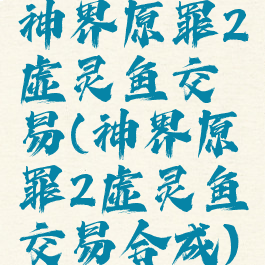 神界原罪2
虚灵鱼交
易(神界原
罪2虚灵鱼
交易合成)